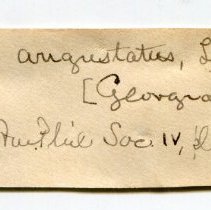 angustatus, L
[Georgia
Am Phil Soc IV,